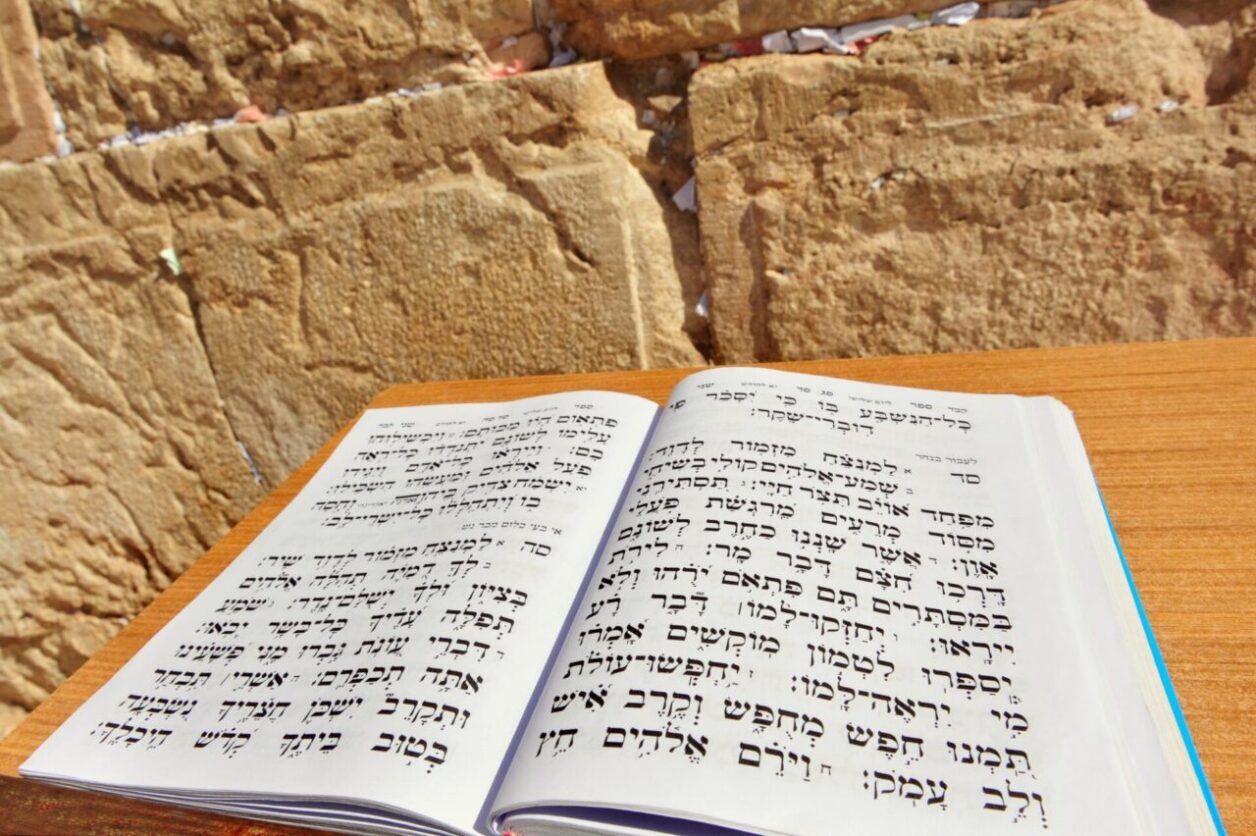 ספר ליום שלישי סג סד יא לחודש שני
כָּל־הַנִּשְׁבָּע בּוֹ כִּי יִסָּכֵר פִּי
דוֹבְרֵי־שָׁקֶר׃
לעבור בנהר
סד א לַמְנַצֵּחַ מִזְמוֹר לְדָוִד׃
ב שְׁמַע־אֱלֹהִים קוֹלִי בְשִׂיחִי
מִפַּחַד אוֹיֵב תִּצֹּר חַיָּי׃ ג תַּסְתִּירֵנִי
מִסּוֹד מְרֵעִים מֵרִגְשַׁת פֹּעֲלֵי
אָוֶן׃ ד אֲשֶׁר שָׁנְנוּ כַחֶרֶב לְשׁוֹנָם
דָּרְכוּ חִצָּם דָּבָר מָר׃ ה לִירֹת
בַּמִּסְתָּרִים תָּם פִּתְאֹם יֹרֻהוּ וְלֹא
יִירָאוּ׃ ו יְחַזְּקוּ־לָמוֹ דָּבָר רָע
יְסַפְּרוּ לִטְמוֹן מוֹקְשִׁים אָמְרוּ
מִי יִרְאֶה־לָּמוֹ׃ ז יַחְפְּשׂוּ־עוֹלֹת
תַּמְנוּ חֵפֶשׂ מְחֻפָּשׂ וְקֶרֶב אִישׁ
וְלֵב עָמֹק׃ ח וַיֹּרֵם אֱלֹהִים חֵץ
ספר ליום שלישי סד סה יא לחודש שני
פִּתְאוֹם הָיוּ מַכּוֹתָם׃ ט וַיַּכְשִׁילוּהוּ
עָלֵימוֹ לְשׁוֹנָם יִתְנֹדְדוּ כָּל־רֹאֵה
בָם׃ י וַיִּירְאוּ כָּל־אָדָם וַיַּגִּידוּ
פֹּעַל אֱלֹהִים וּמַעֲשֵׂהוּ הִשְׂכִּילוּ׃
יא יִשְׂמַח צַדִּיק בַּיהוָה וְחָסָה
בוֹ וְיִתְהַלְלוּ כָּל־יִשְׁרֵי־לֵב׃
סה א לַמְנַצֵּחַ מִזְמוֹר לְדָוִד שִׁיר׃
ב לְךָ דֻמִיָּה תְהִלָּה אֱלֹהִים
בְּצִיּוֹן וּלְךָ יְשֻׁלַּם־נֶדֶר׃ ג שֹׁמֵעַ
תְּפִלָּה עָדֶיךָ כָּל־בָּשָׂר יָבֹאוּ׃
ד דִּבְרֵי עֲוֺנֹת גָּבְרוּ מֶנִּי פְּשָׁעֵינוּ
אַתָּה תְכַפְּרֵם׃ ה אַשְׁרֵי תִּבְחַר
וּתְקָרֵב יִשְׁכֹּן חֲצֵרֶיךָ נִשְׂבְּעָה
בְּטוּב בֵּיתֶךָ קְדֹשׁ הֵיכָלֶךָ׃